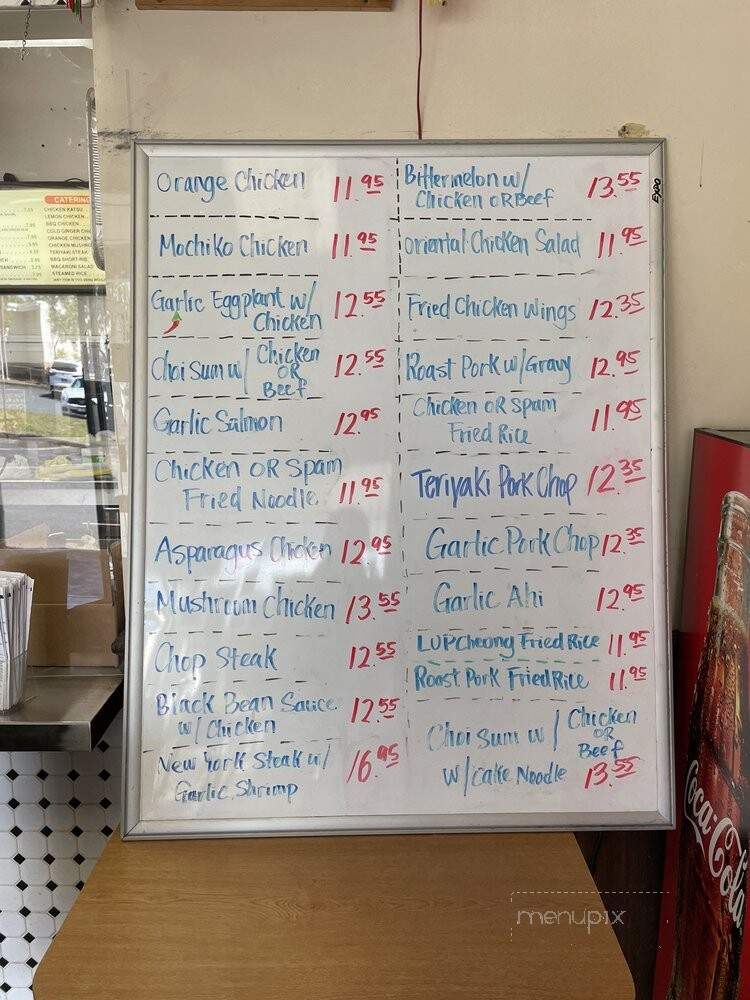 Orange Chicken 11.95
Mochiko Chicken 11.95
Garlic Eggplant w/
Chicken 12.55
Choi Sum w/ Chicken
OR
Beef 12.55
Garlic Salmon 12.95
Chicken OR Spam
Fried Noodle 11.95
Asparagus Chicken 12.95
Mushroom Chicken 13.55
Chop Steak 12.55
Black Bean Sauce
w/ Chicken 12.55
New York Steak w/
Garlic Shrimp 16.95
Bittermelon w/
Chicken OR Beef 13.55
Oriental Chicken Salad 11.95
Fried Chicken Wings 12.35
Roast Pork w/Gravy 12.95
Chicken OR Spam
Fried Rice 11.95
Teriyaki Pork Chop 12.35
Garlic Pork Chop 12.35
Garlic Ahi 12.95
LUP Cheong Fried Rice 11.95
Roast Pork Fried Rice 11.95
Choi Sum w/ Chicken
OR
Beef
w/cake Noodle 13.55
EXPO
CATERING
CHICKEN KATSU
LEMON CHICKEN
BBQ CHICKEN
COLD GINGER CHI
ORANGE CHICKEN
CHICKEN MUSHRO
TERIYAKI STEAK
BBQ SHORT RIB
MACARONI SALAD
STEAMED RICE
Coca-Cola
menupix